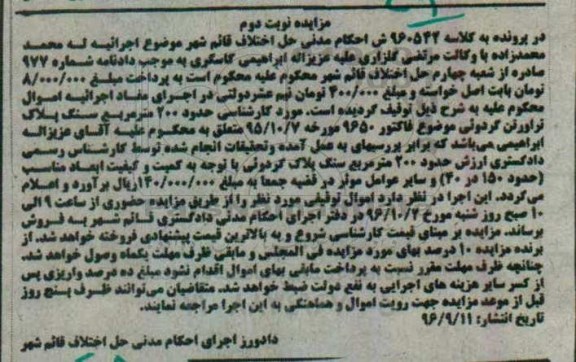 مزایده نوبت دوم
در پرونده به کلاسه ۹۶۰۵۴۲ ش احکام مدنی حل اختلاف قائم شهر موضوع اجرائیه له محمد
محمدزاده با وکالت مرتضی گلزاری علیه عزیزاله ابراهیمی کاسگری به موجب دادنامه شماره ۹۷۷
صادره از شعبه چهارم حل اختلاف قائم شهر محکوم علیه محکوم است به پرداخت مبلغ ۸/۰۰۰/۰۰۰
تومان بابت اصل خواسته و مبلغ ۴۰۰/۰۰۰ تومان نیم عشردولتی در اجرای مفاد اجرائیه اموال
محکوم علیه به شرح ذیل توقیف گردیده است. مورد کارشناسی حدود ۲۰۰ مترمربع سنگ پلاک
تراورتن گردوئی موضوع فاکتور ۹۶۵۰ مورخه ۹۵/۱۰/۷ متعلق به محکوم علیه آقای عزیزاله
ابراهیمی می‌باشد که برابر بررسیهای به عمل آمده وتحقیقات انجام شده توسط کارشناس رسمی
دادگستری ارزش حدود ۲۰۰ مترمربع سنگ پلاک گردوئی با توجه به کمیت و کیفیت ابعاد مناسب
(حدود ۱۵۰ در ۴۰) و سایر عوامل موثر در قضیه جمعا به مبلغ ۱۴۰/۰۰۰/۰۰۰ریال برآورد و اعلام
می‌گردد. این اجرا در نظر دارد اموال توقیفی مورد نظر را از طریق مزایده حضوری از ساعت ۹ الی
۱۰ صبح روز شنبه مورخ ۹۶/۱۰/۲ در دفتر اجرای احکام مدنی دادگستری قائم شهر به فروش
برساند. مزایده بر مبنای قیمت کارشناسی شروع و به بالاترین قیمت پیشنهادی فروخته خواهد شد. از
برنده مزایده ۱۰ درصد بهای مورد مزایده فی المجلس و مابقی ظرف مهلت یکماه وصول خواهد شد.
چنانچه ظرف مهلت مقرر نسبت به پرداخت مابقی بهای اموال اقدام نشود مبلغ ده درصد واریزی پس
از کسر سایر هزینه های اجرایی به نفع دولت ضبط خواهد شد. متقاضیان می‌توانند ظرف پنج روز
قبل از موعد مزایده جهت رویت اموال و هماهنگی به این اجرا مراجعه نمایند.
تاریخ انتشار: ۹۶/۹/۱۱
دادورز اجرای احکام مدنی حل اختلاف قائم شهر